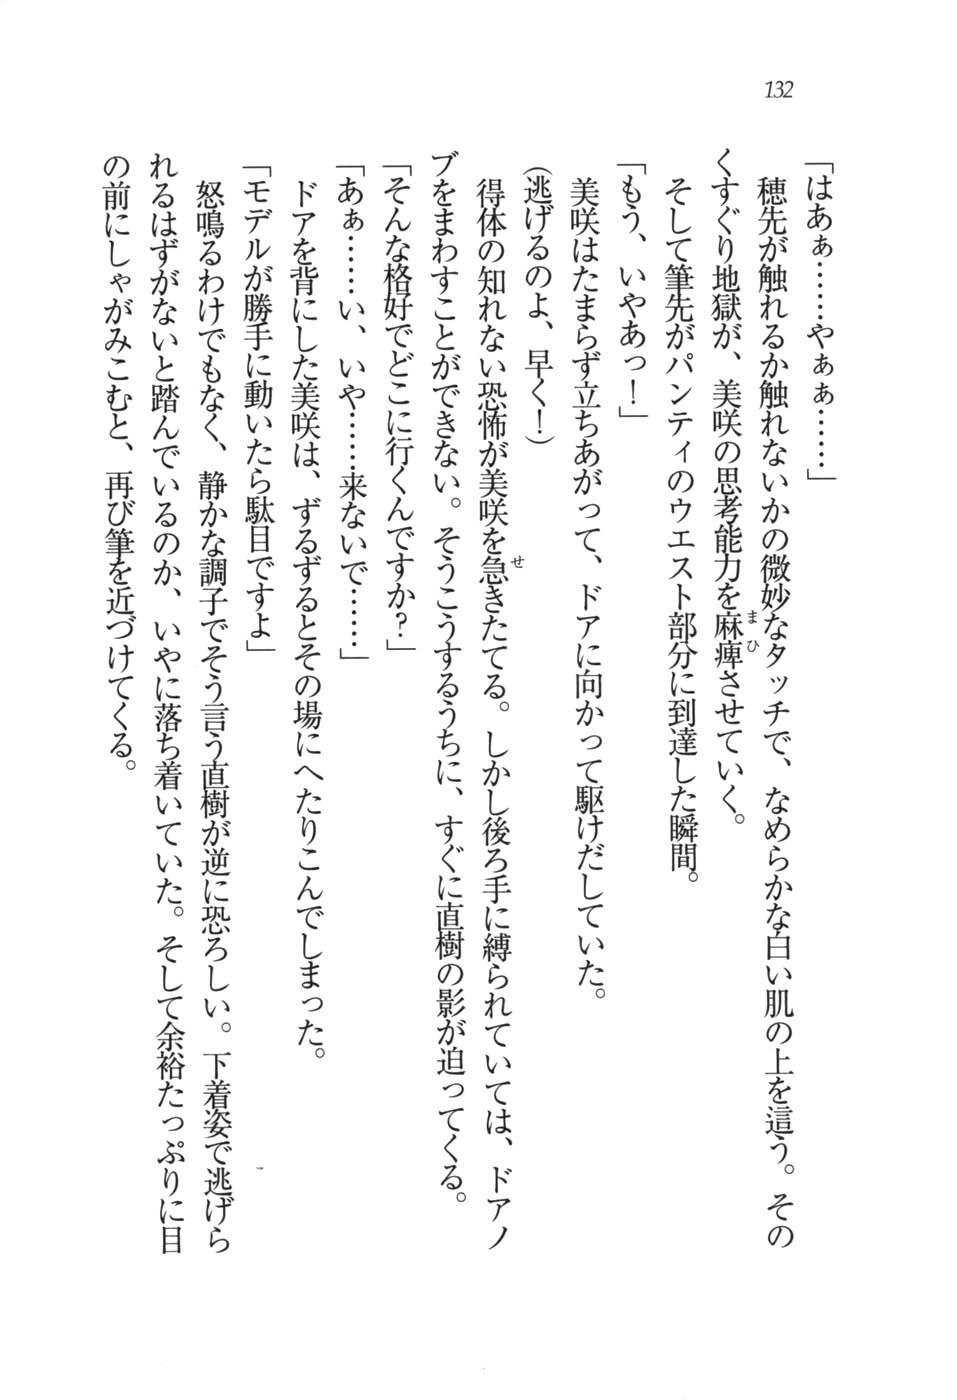 132
「はあぁ……やぁぁ……」
　穂先が触れるか触れないかの微妙なタッチで、なめらかな白い肌の上を這う。その
くすぐり地獄が、美咲の思考能力を麻痺させていく。
　そして筆先がパンティのウエスト部分に到達した瞬間。
「もう、いやあっ！」
　美咲はたまらず立ちあがって、ドアに向かって駆けだしていた。
（逃げるのよ、早く！）
　得体の知れない恐怖が美咲を急きたてる。しかし後ろ手に縛られていては、ドアノ
ブをまわすことができない。そうこうするうちに、すぐに直樹の影が迫ってくる。
「そんな格好でどこに行くんですか？」
「あぁ……い、いや……来ないで……」
　ドアを背にした美咲は、ずるずるとその場にへたりこんでしまった。
「モデルが勝手に動いたら駄目ですよ」
　怒鳴るわけでもなく、静かな調子でそう言う直樹が逆に恐ろしい。下着姿で逃げら
れるはずがないと踏んでいるのか、いやに落ち着いていた。そして余裕たっぷりに目
の前にしゃがみこむと、再び筆を近づけてくる。